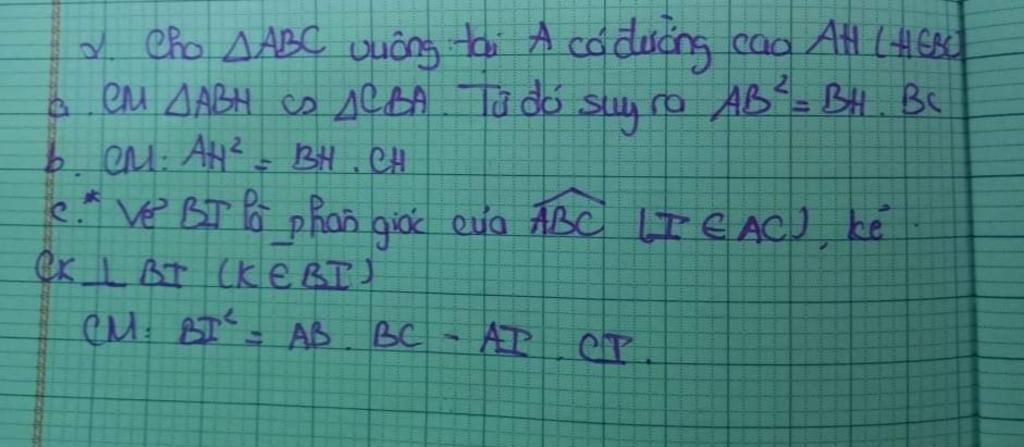 2 Cho ΔABC vuông tại A có đường cao AH (H∈BC)
a. CM ΔABH ∽ ΔCBA. Từ đó suy ra AB² = BH . BC
b. CM: AH² = BH . CH
c.* Vẽ BI là phân giác của \widehat{ABC} (I ∈ AC), kẻ
CK ⊥ BI (K ∈ BI)
CM: BI² = AB . BC - AI . CI.